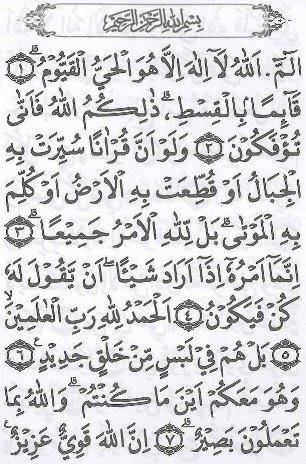 بِسْمِ اللهِ الرَّحْمٰنِ الرَّحِيْمِ
الٓمّٓ. اَللهُ لَآ اِلٰهَ اِلَّا هُوَ الْحَيُّ الْقَيُّوْمُ ۗ ﴿١﴾
قَآئِمًا بِالْقِسْطِ ۗ ذٰلِكُمُ اللهُ فَاَنّٰى
تُؤْفَكُوْنَ ﴿٢﴾ وَلَوْ اَنَّ قُرْاٰنًا سُيِّرَتْ بِهِ
الْجِبَالُ اَوْ قُطِّعَتْ بِهِ الْاَرْضُ اَوْ كُلِّمَ
بِهِ الْمَوْتٰى ۗ بَلْ لِلّٰهِ الْاَمْرُ جَمِيْعًا ۗ ﴿٣﴾
اِنَّمَآ اَمْرُهٗٓ اِذَآ اَرَادَ شَيْـًٔا ۖ اَنْ يَّقُوْلَ لَهٗ
كُنْ فَيَكُوْنُ ﴿٤﴾ اَلْحَمْدُ لِلّٰهِ رَبِّ الْعٰلَمِيْنَ ۙ
﴿٥﴾ بَلْ هُمْ فِيْ لَبْسٍ مِّنْ خَلْقٍ جَدِيْدٍ ۚ ﴿٦﴾
وَهُوَ مَعَكُمْ اَيْنَ مَا كُنْتُمْ ۗ وَاللهُ بِمَا
تَعْمَلُوْنَ بَصِيْرٌ ۗ ﴿٧﴾ اِنَّ اللهَ قَوِيٌّ عَزِيْزٌ ۚ